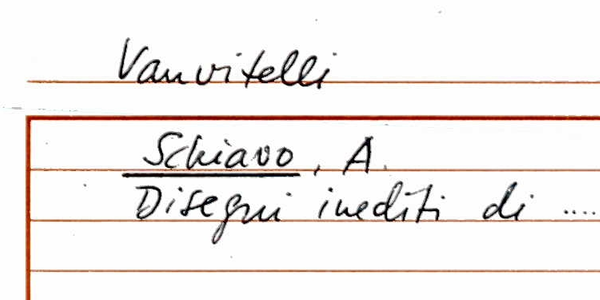 Vanvitelli
Schiavo, A.
Disegni inediti di ....